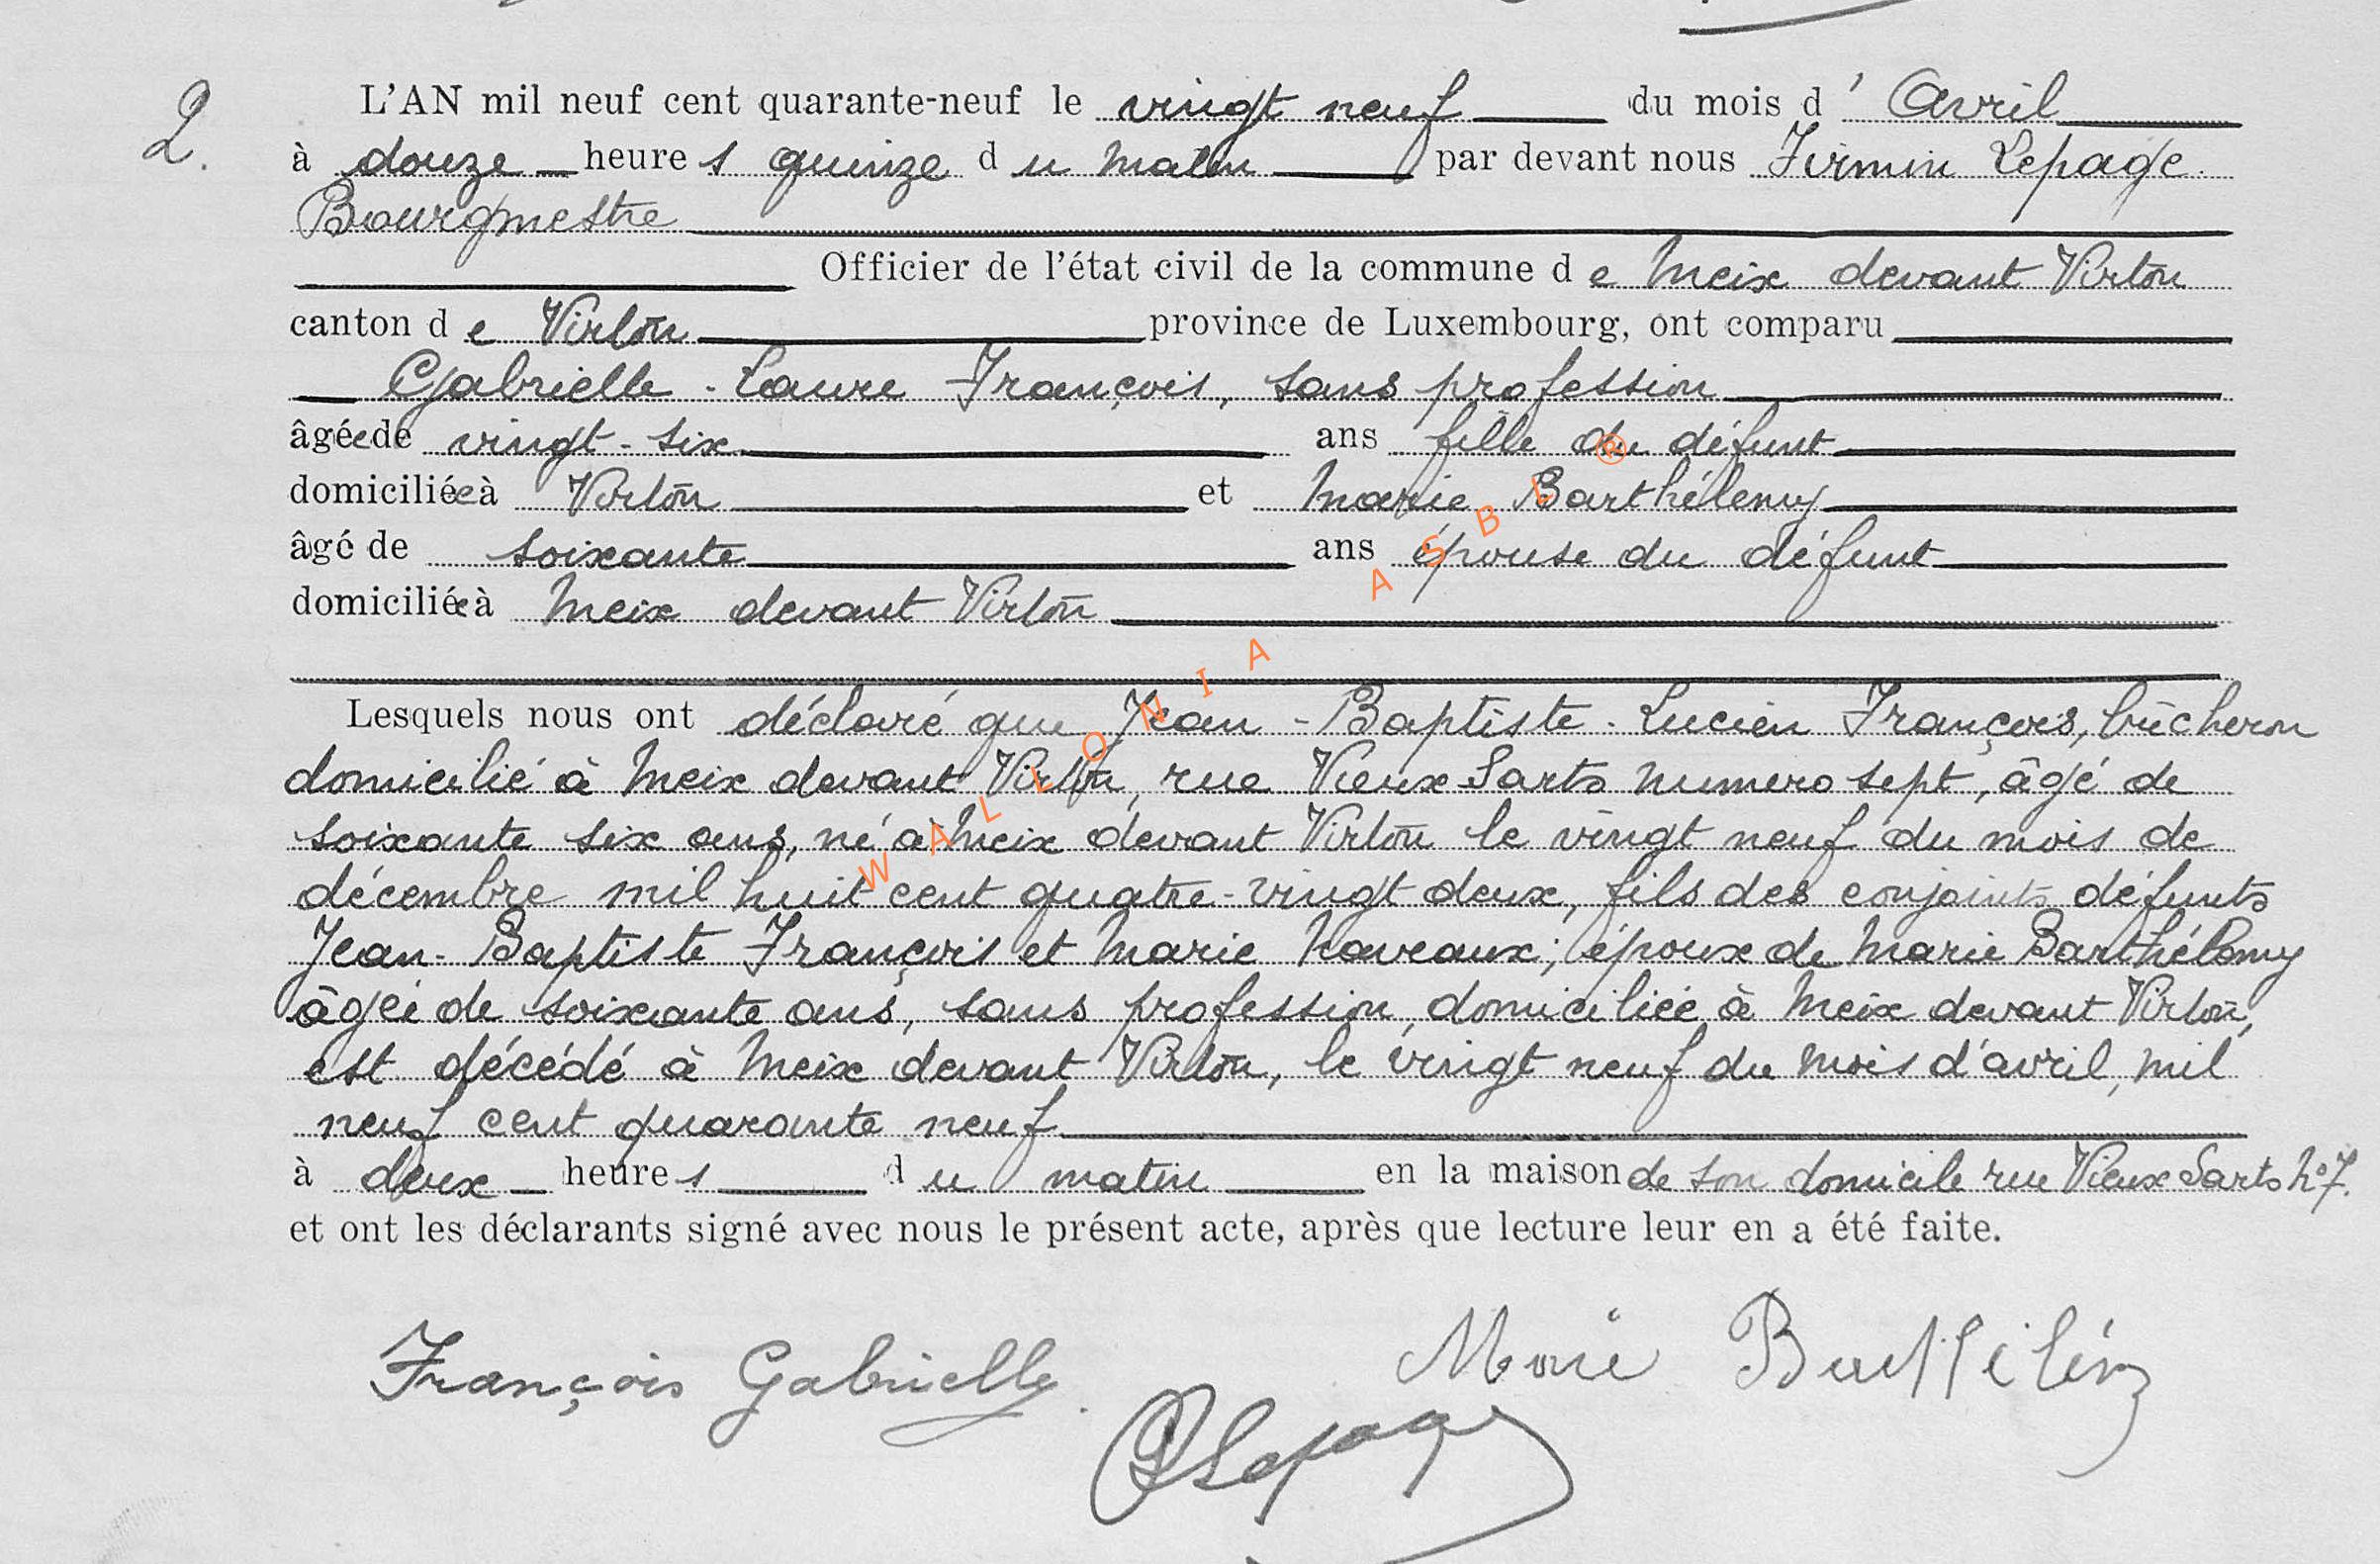 2.
L'AN mil neuf cent quarante-neuf le vingt neuf du mois d' Avril
à douze heures quinze du matin par devant nous Firmin Lepage
Bourgmestre
Officier de l'état civil de la commune de Meix devant Virton
canton de Virton province de Luxembourg, ont comparu
Gabrielle - Laure François, sans profession
âgée de vingt-six ans fille du défunt
domiciliée à Virton et Marie Barthélemy
âgé de soixante ans épouse du défunt
domiciliée à Meix devant Virton
Lesquels nous ont déclaré que Jean - Baptiste - Lucien François, bûcheron
domicilié à Meix devant Virton, rue Vieux Sarts numero sept, âgé de
soixante six ans, né à Meix devant Virton le vingt neuf du mois de
décembre mil huit cent quatre-vingt deux, fils des conjoints défunts
Jean-Baptiste François et Marie Naveaux; époux de Marie Barthélemy
âgée de soixante ans, sans profession, domiciliée à Meix devant Virton,
est décédé à Meix devant Virton, le vingt neuf du mois d'avril, mil
neuf cent quarante neuf
à deux heures du matin en la maison de son domicile rue Vieux Sarts N°7.
et ont les déclarants signé avec nous le présent acte, après que lecture leur en a été faite.
François Gabrielle. Marie
Lepage
WALLONIA ASBL ®